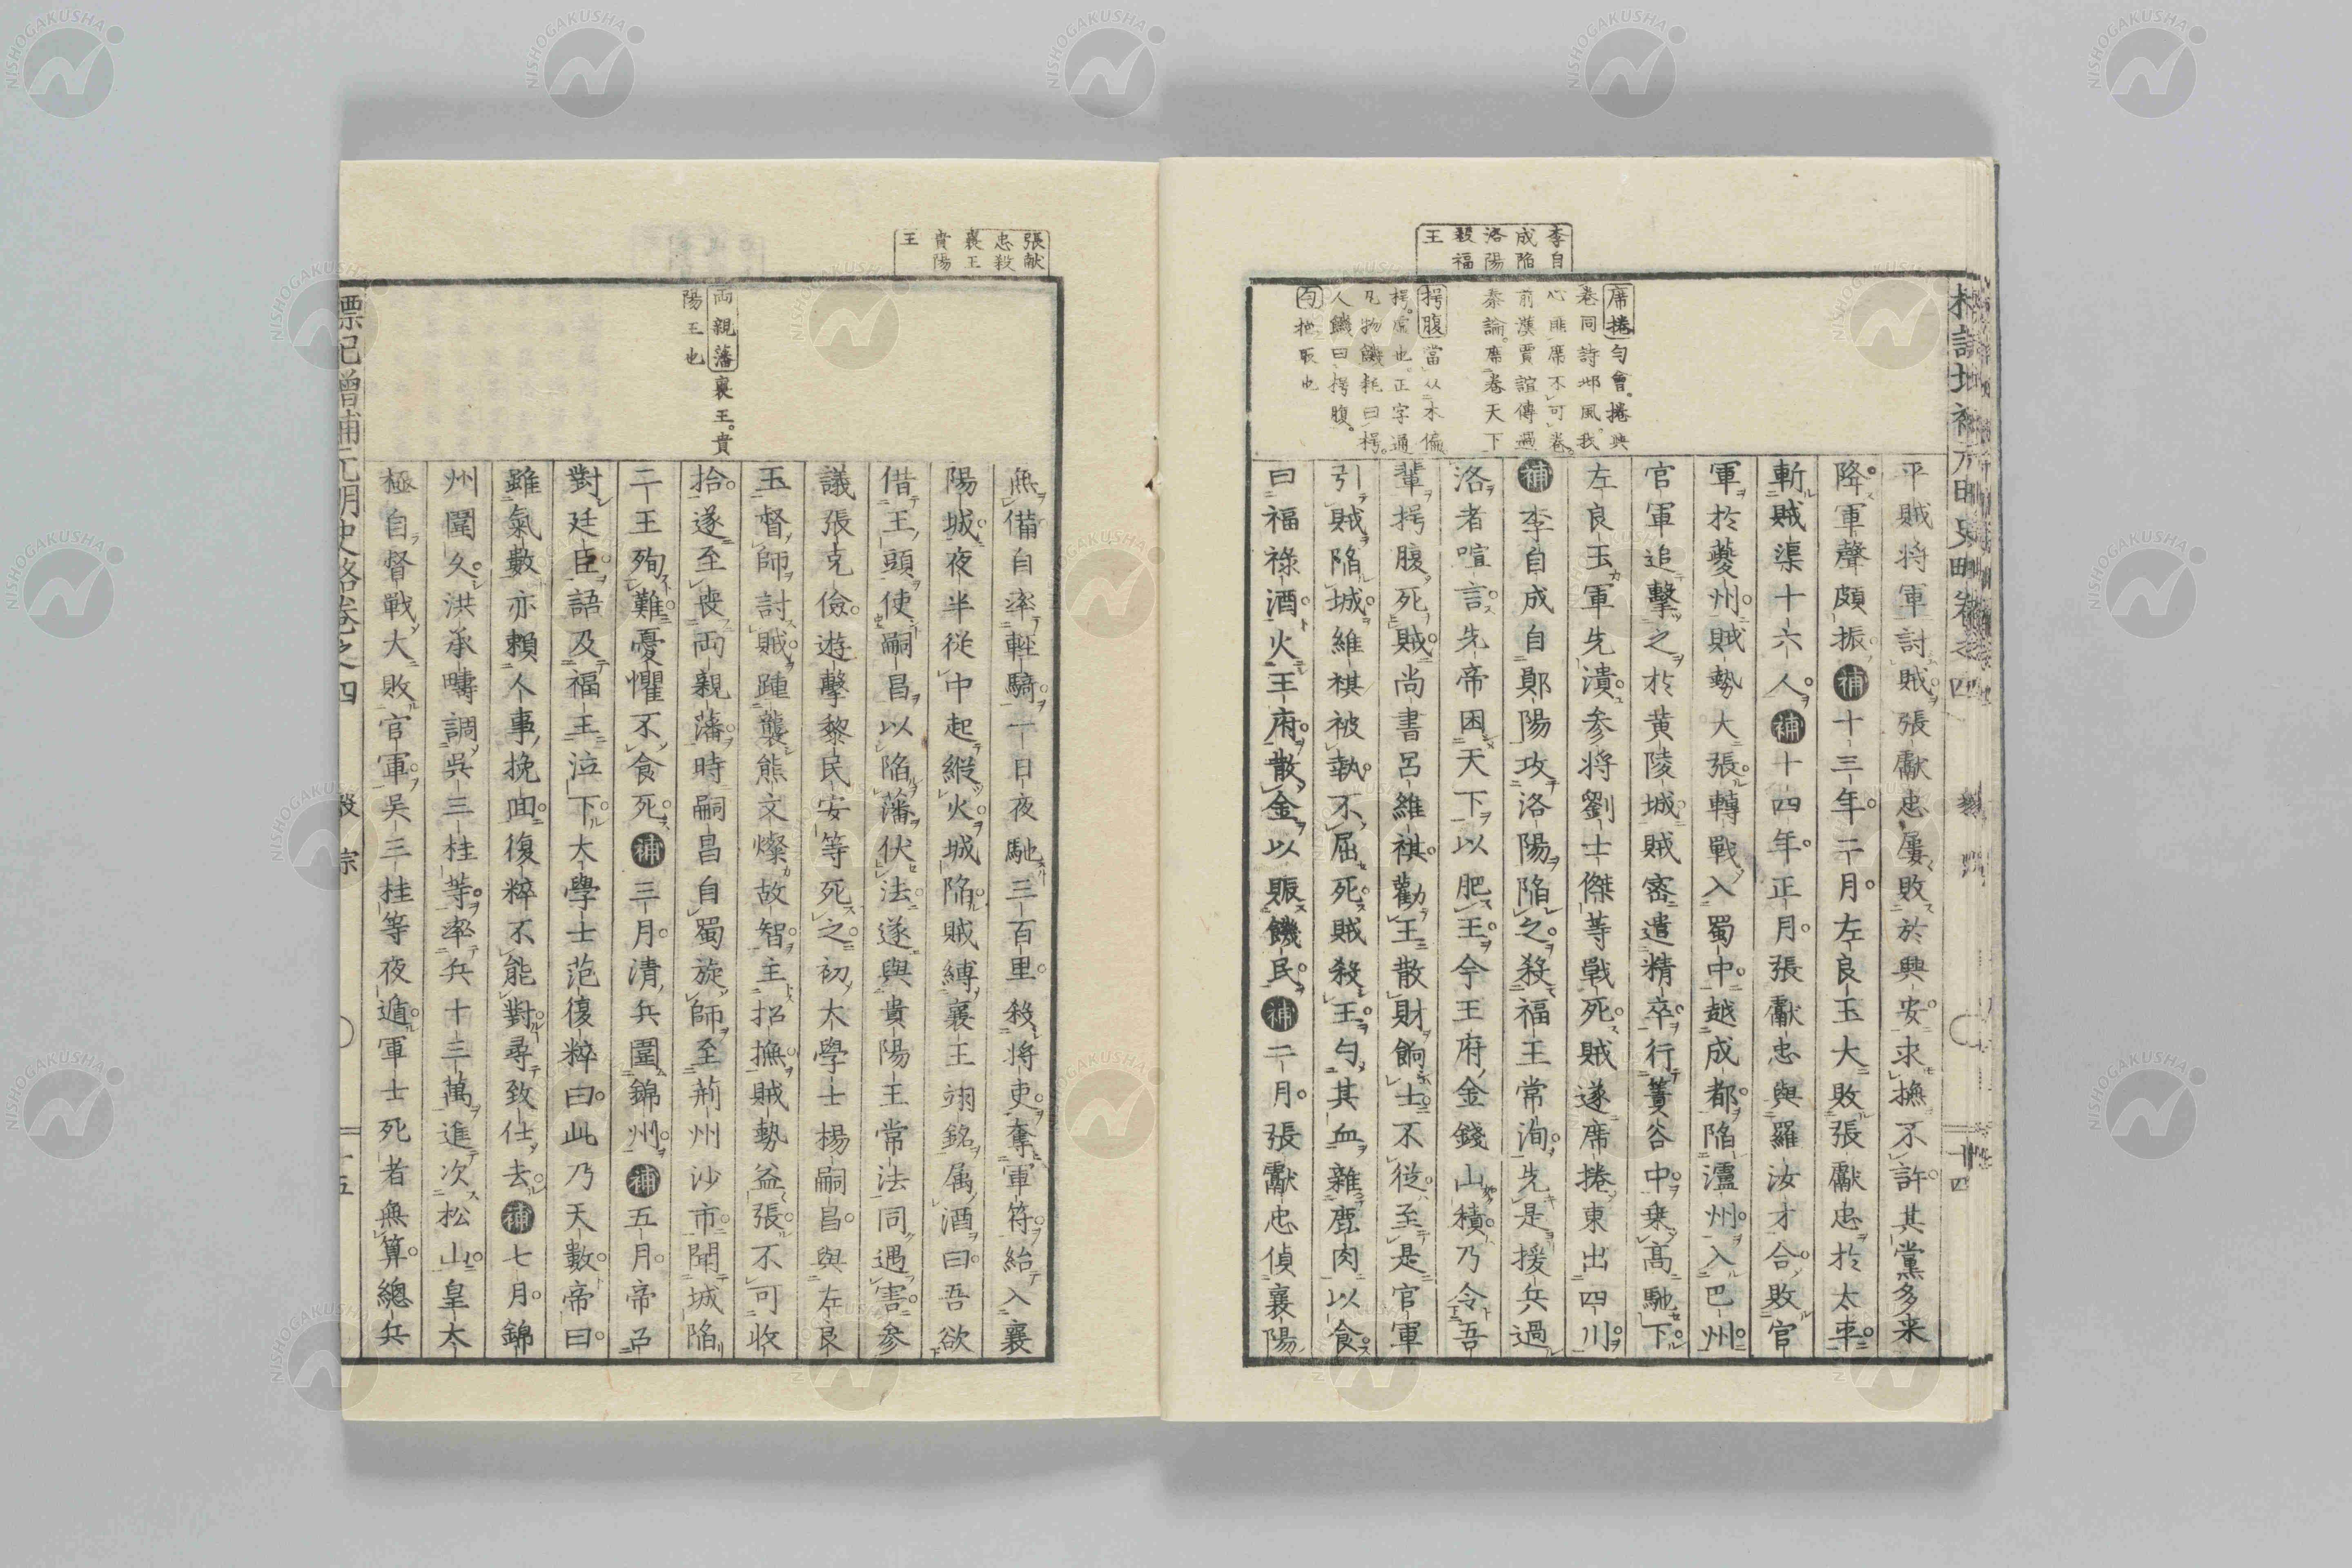 李自
成陥
洛陽
殺福
王
席捲勻會。捲與
卷同詩邶風。我
心匪席不可卷。
前漢賈誼傳過
秦論。席卷天下
枵腹當从木偏
枵。虚也。正字通
凡物饑耗曰枵。
人饑曰枵腹。
勻抱取也
平賊将軍討賊張獻忠屢敗於興安求撫不許其黨多来
降軍聲頗振補十三年二月左良玉大敗張獻忠於太平
斬賊渠十六人補十四年正月張獻忠與羅汝才合敗官
軍於夔州賊勢大張轉戰入蜀中越成都陥瀘州入巴州
官軍追擊之於黄陵城賊密遣精卒行菁谷中乗高馳下
左良玉軍先潰参将劉士傑等戰死賊遂席捲東出四川
補李自成自鄖陽攻洛陽陥之殺福王常洵先是援兵過
洛者喧言先帝困天下以肥王今王府金錢山積乃令吾
輩枵腹死賊尚書呂維祺勸王散財餉士不従至是官軍
引賊陥城維祺被執不屈死賊殺王勻其血雜鹿肉以食
曰福祿酒火王府散金以賑饑民補二月張獻忠偵襄陽
張献
忠殺
襄王
貴陽
王
両親藩襄王。貴
陽王也
無備自率軽騎一日夜馳三百里殺将吏奪軍符紿入襄
陽城夜半従中起縦火城陥賊縛襄王翊銘属酒曰吾欲
借王頭使嗣昌以陥藩伏法遂與貴陽王常法同遇害参
議張克儉遊擊黎民安等死之初大學士楊嗣昌與左良
玉督師討賊踵襲熊文燦故智主招撫賊勢益張不可收
拾遂至喪両親藩時嗣昌自蜀旋師至荊州沙市聞城陥
二王殉難憂懼不食死補三月清兵圍錦州補五月帝召
對廷臣語及福王泣下大學士范復粹曰此乃天數帝曰
雖氣數亦頼人事挽回復粹不能對尋致仕去補七月錦
州圍久洪承疇調吳三桂等率兵十三萬進次松山皇太
極自督戰大敗官軍吳三桂等夜遁軍士死者無算總兵
標記増補元明史略卷之四
毅宗
十五
十四